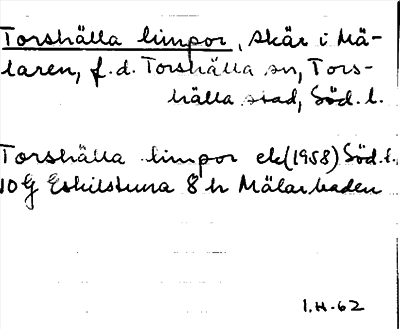 Torshälla limpor, skär i Mä-
laren, f.d. Torshälla sn, Tors-
hälla stad, Söd. l.
Torshälla limpor ek (1958) Söd. l.
10 G Eskilstuna 8 h Mälarbaden
I.H-62